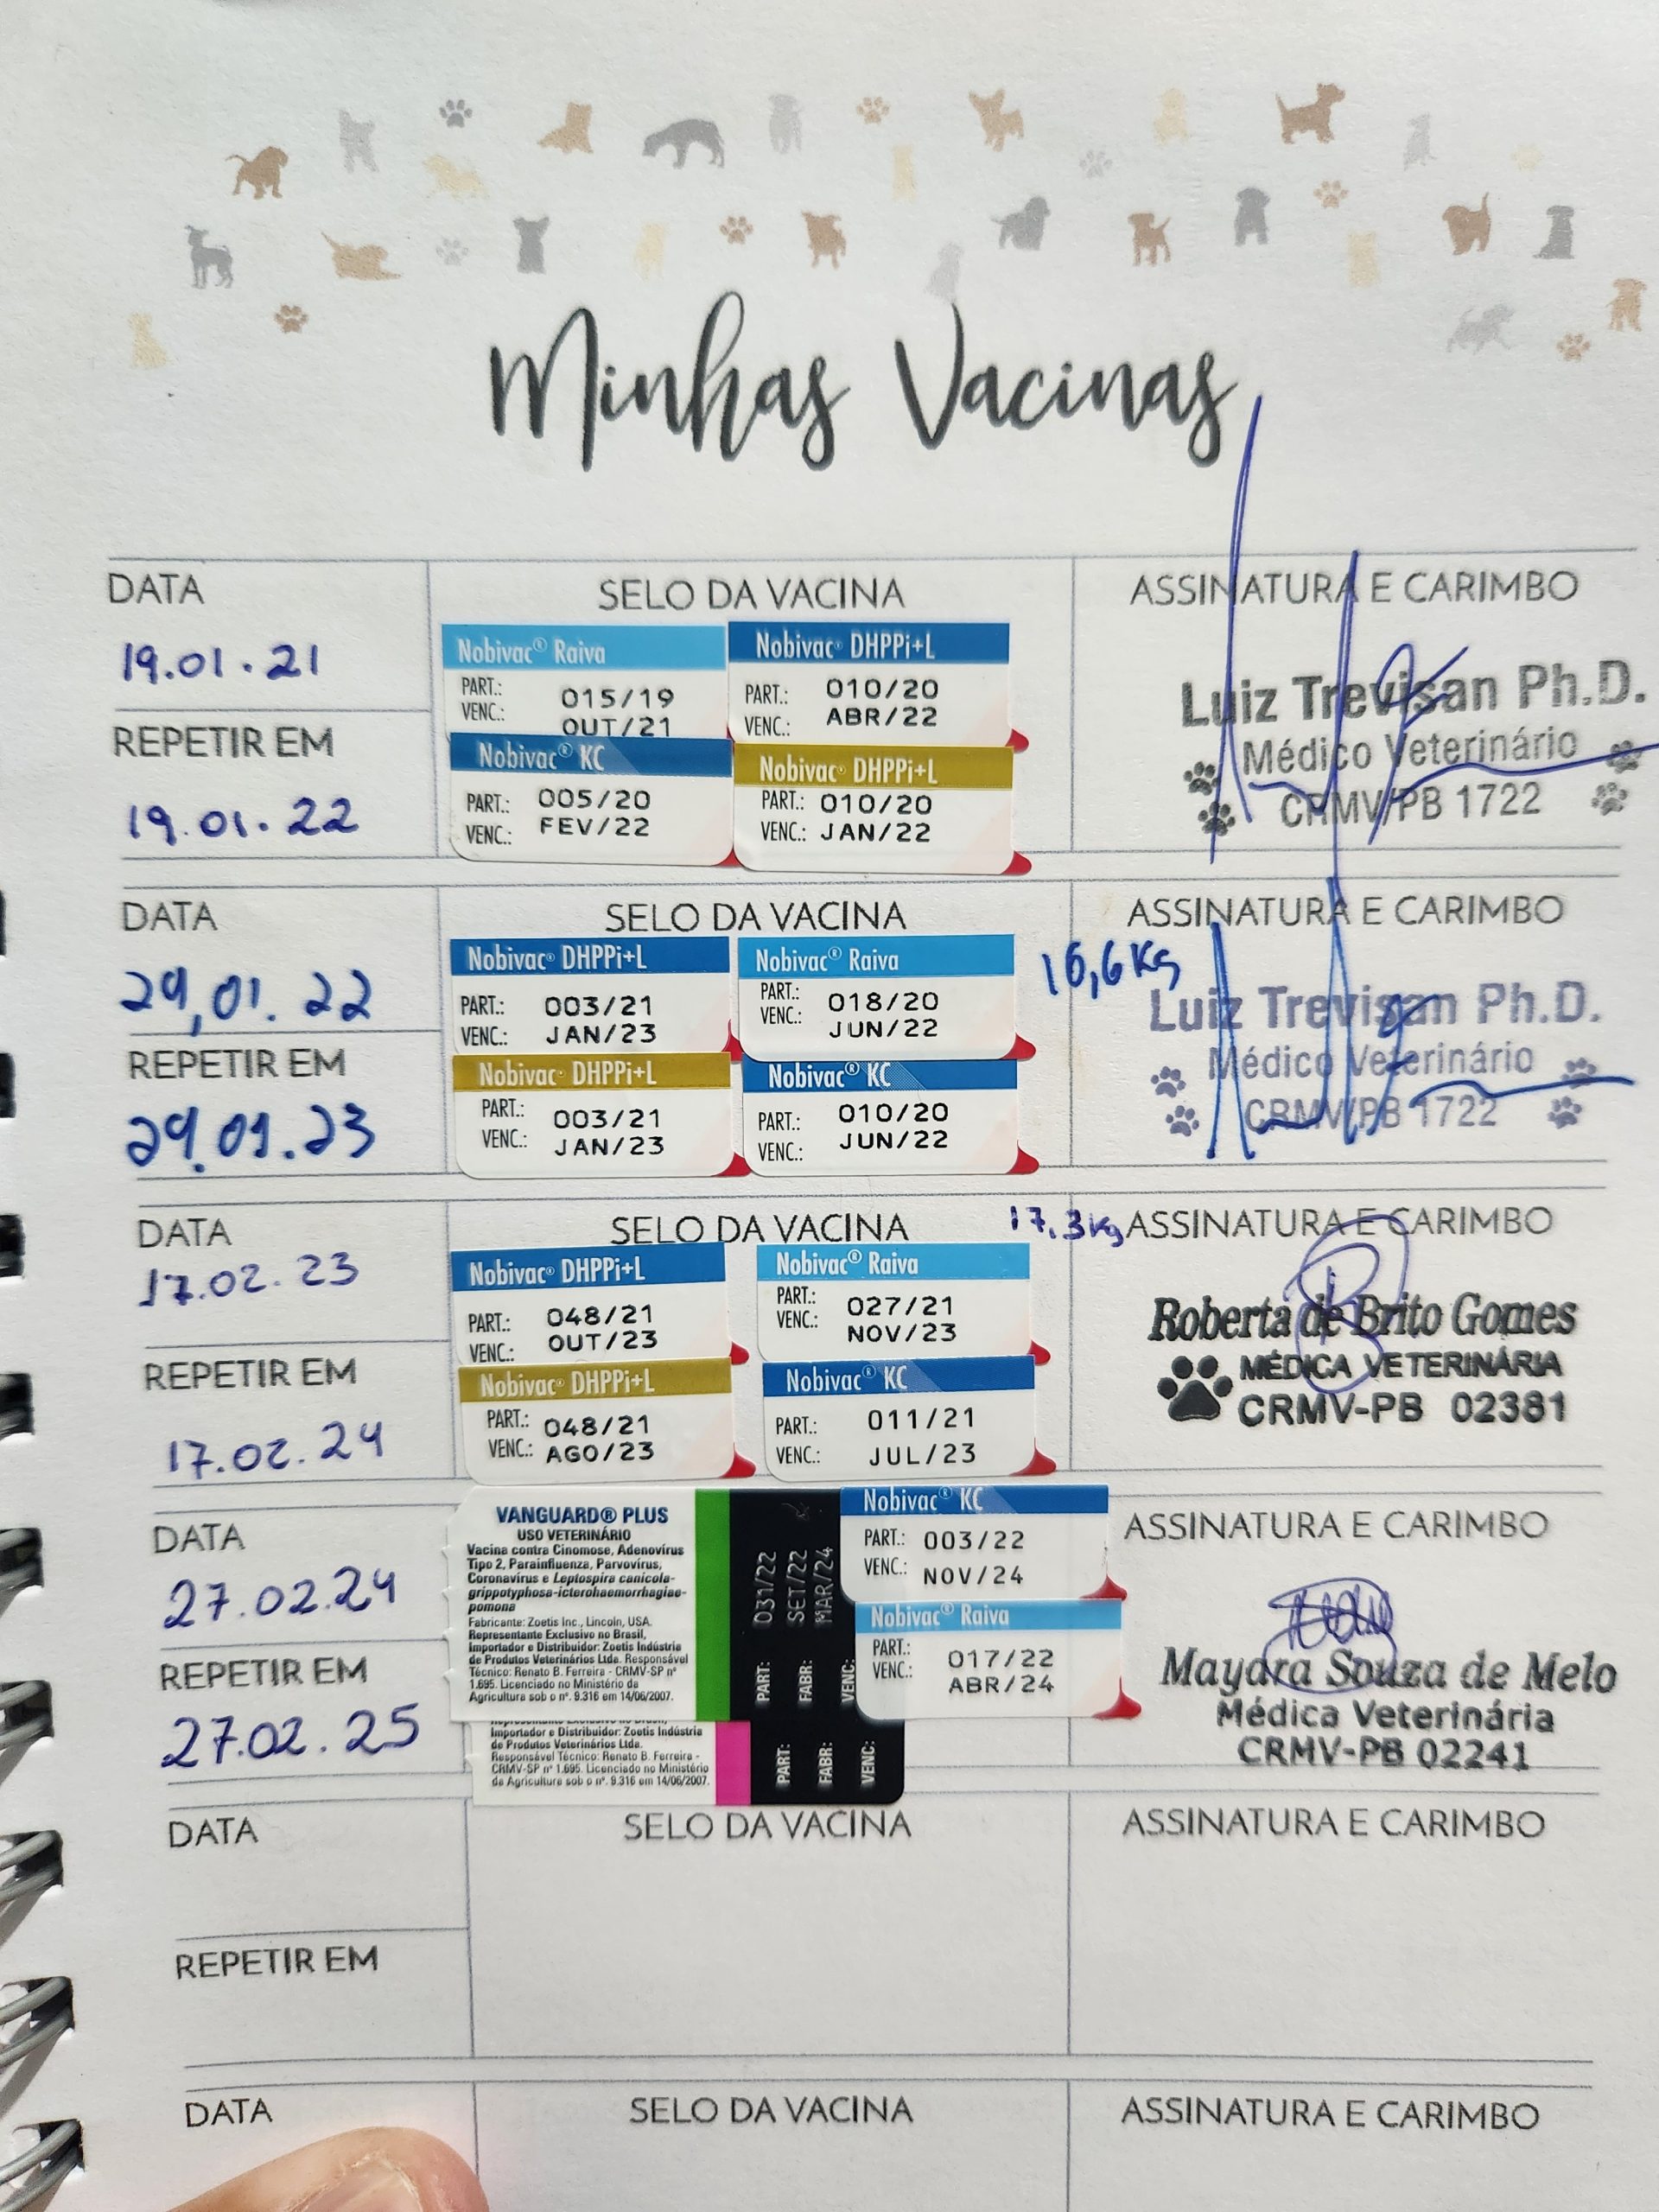 Minhas Vacinas
DATA
19.01.21
REPETIR EM
19.01.22
SELO DA VACINA
Nobivac® Raiva
PART.: 015/19
VENC.: OUT/21
Nobivac® DHPPi+L
PART.: 010/20
VENC.: ABR/22
Nobivac® KC
PART.: 005/20
VENC.: FEV/22
Nobivac® DHPPi+L
PART.: 010/20
VENC.: JAN/22
ASSINATURA E CARIMBO
Luiz Trevisan Ph.D.
Médico Veterinário
CRMV/PB 1722
DATA
29,01.22
REPETIR EM
29.01.23
SELO DA VACINA
Nobivac® DHPPi+L
PART.: 003/21
VENC.: JAN/23
Nobivac® Raiva
PART.: 018/20
VENC.: JUN/22
Nobivac® DHPPi+L
PART.: 003/21
VENC.: JAN/23
Nobivac® KC
PART.: 010/20
VENC.: JUN/22
ASSINATURA E CARIMBO
16,6 Kg
Luiz Trevisan Ph.D.
Médico Veterinário
CRMV/PB 1722
DATA
17.02.23
REPETIR EM
17.02.24
SELO DA VACINA
Nobivac® DHPPi+L
PART.: 048/21
VENC.: OUT/23
Nobivac® Raiva
PART.: 027/21
VENC.: NOV/23
Nobivac® DHPPi+L
PART.: 048/21
VENC.: AGO/23
Nobivac® KC
PART.: 011/21
VENC.: JUL/23
17.3kg
ASSINATURA E CARIMBO
Roberta de Brito Gomes
MÉDICA VETERINÁRIA
CRMV-PB 02381
DATA
27.02.24
REPETIR EM
27.02.25
VANGUARD® PLUS
USO VETERINÁRIO
Vacina contra Cinomose, Adenovírus
Tipo 2, Parainfluenza, Parvovírus,
Coronavírus e Leptospira canicola-
grippotyphosa-icterohaemorrhagiae-
pomona
Fabricante: Zoetis Inc., Lincoln, USA.
Representante Exclusivo no Brasil,
Importador e Distribuidor: Zoetis Indústria
de Produtos Veterinários Ltda. Responsável
Técnico: Renato B. Ferreira - CRMV-SP nº
1.695. Licenciado no Ministério da
Agricultura sob o nº. 9.316 em 14/06/2007.
PART: 031/22
FABR: SET/22
VENC: MAR/24
Importador e Distribuidor: Zoetis Indústria
de Produtos Veterinários Ltda.
Responsável Técnico: Renato B. Ferreira -
CRMV-SP nº 1.695. Licenciado no Ministério
da Agricultura sob o nº. 9.316 em 14/06/2007.
PART:
FABR:
VENC:
Nobivac® KC
PART.: 003/22
VENC.: NOV/24
Nobivac® Raiva
PART.: 017/22
VENC.: ABR/24
ASSINATURA E CARIMBO
Mayara Souza de Melo
Médica Veterinária
CRMV-PB 02241
DATA
REPETIR EM
SELO DA VACINA
ASSINATURA E CARIMBO
DATA
SELO DA VACINA
ASSINATURA E CARIMBO